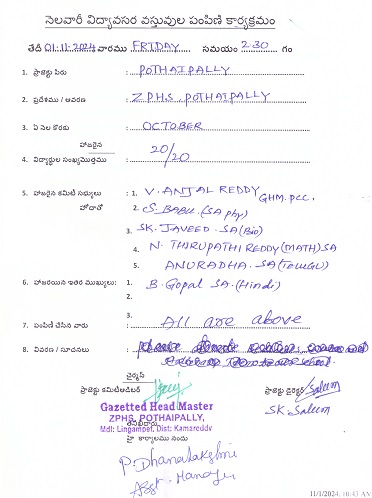 నెలవారీ విద్యావసర వస్తువుల పంపిణి కార్యక్రమం
తేదీ 01-11-2024 వారము FRIDAY సమయం 2-30 గం
1. ప్రాజెక్టు పేరు : POTHAIPALLY
2. ప్రదేశము / ఆవరణ : Z.P.H.S, POTHAIPALLY
3. ఏ నెల కొరకు : OCTOBER
హాజరైన
4. విద్యార్థుల సంఖ్య/మొత్తము : 20/20
5. హాజరైన కమిటి సభ్యులు : 1. V. ANJAL REDDY GHM. PCC.
హోదాతో 2. S. BABU (SA phy)
3. SK. JAVEED SA (Bio)
4. N. THIRUPATHI REDDY (MATH) SA
5. ANURADHA. SA (TELUGU)
6. హాజరయిన ఇతర ముఖ్యులు: 1. B. Gopal SA. (Hindi)
2.
3.
7. పంపిణి చేసిన వారు : All are above
8. వివరణ / సూచనలు :
చైర్మన్
ప్రాజెక్టు కమిటి ప్రాజెక్టు డైరెక్టర్ Saleem
Gazetted Head Master SK. Saleem
ZPHS, POTHAIPALLY,
Mdl: Lingampet, Dist: Kamareddy
హై కార్యాలము నందు
P. Dhanalakshmi
Asst. Manager
11/1/2024, 10:43 AM